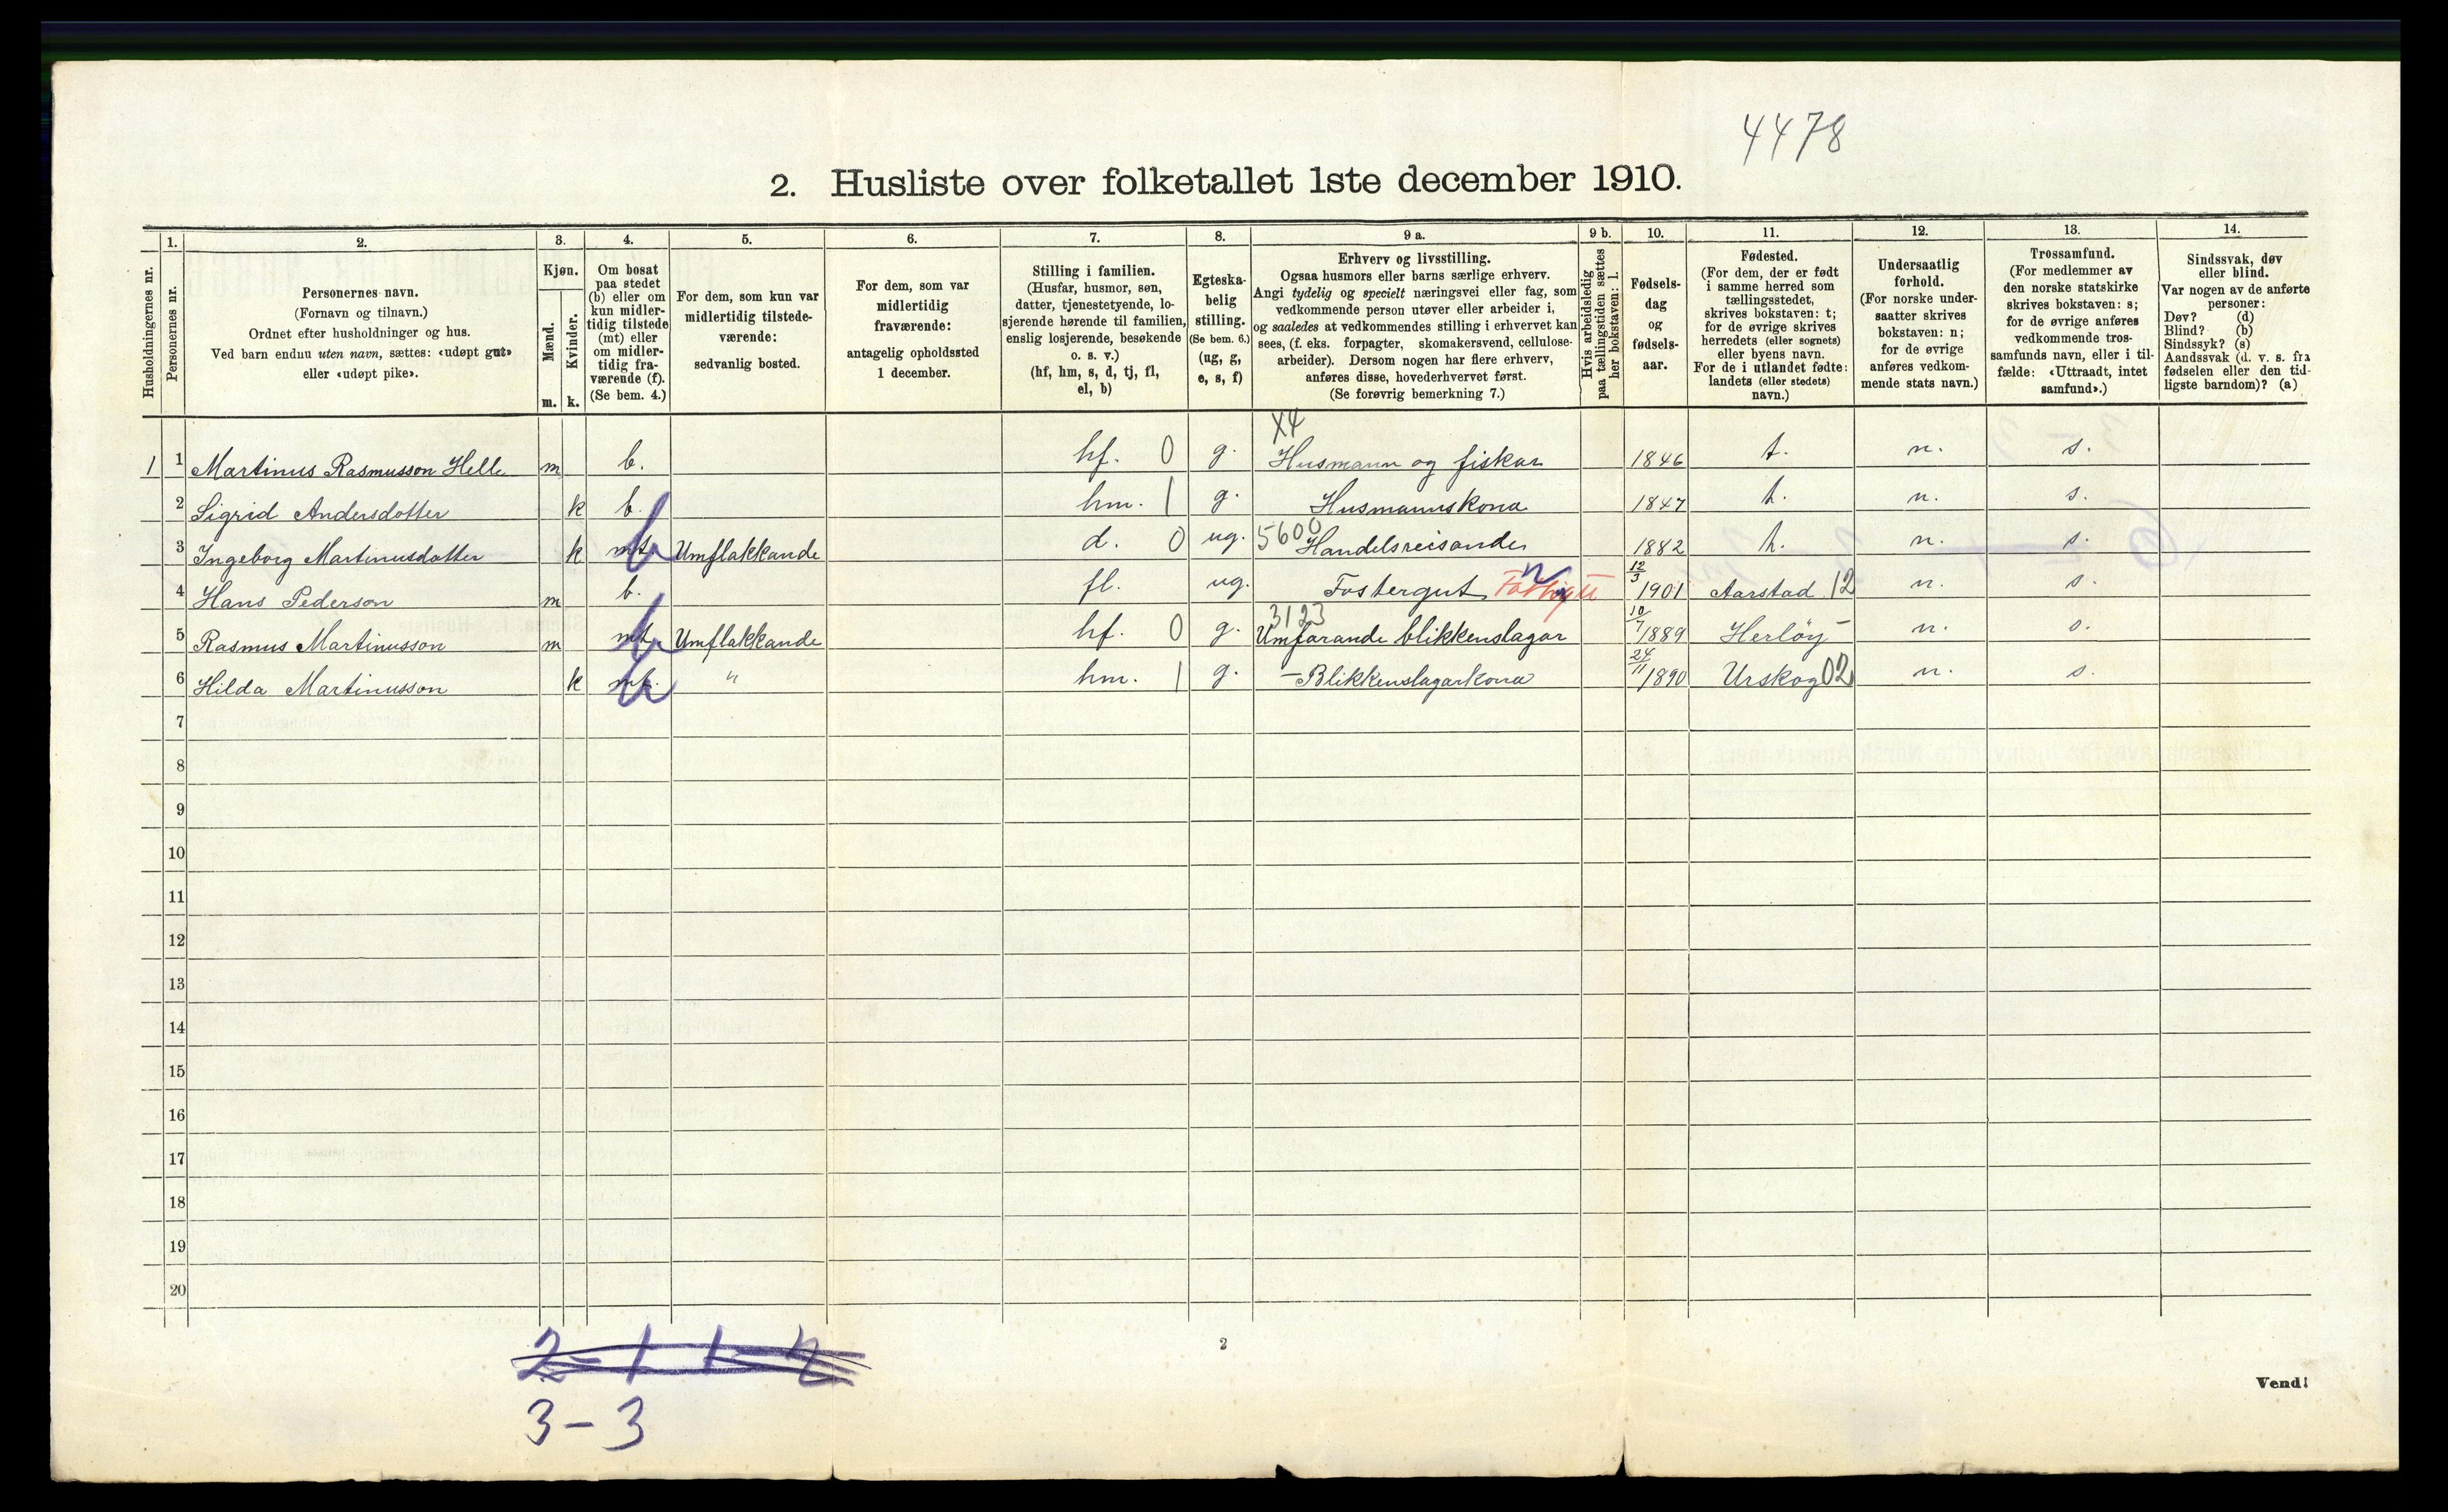 4478
2. Husliste over folketallet 1ste december 1910.
Husholdningernes nr.
1.
Personernes nr.
2.
Personernes navn.
(Fornavn og tilnavn.)
Ordnet efter husholdninger og hus.
Ved barn endnu uten navn, sættes: «udøpt gut»
eller «udøpt pike».
3.
Kjøn.
Mænd.
Kvinder.
m. k.
4.
Om bosat
paa stedet
(b) eller om
kun midler-
tidig tilstede
(mt) eller
om midler-
tidig fra-
værende (f).
(Se bem. 4.)
5.
For dem, som kun var
midlertidig tilstede-
værende:
sedvanlig bosted.
6.
For dem, som var
midlertidig
fraværende:
antagelig opholdssted
1 december.
7.
Stilling i familien.
(Husfar, husmor, søn,
datter, tjenestetyende, lo-
sjerende hørende til familien,
enslig losjerende, besøkende
o. s. v.)
(hf, hm, s, d, tj, fl,
el, b)
8.
Egteska-
belig
stilling.
(Se bem. 6.)
(ug, g,
e, s, f)
9 a.
Erhverv og livsstilling.
Ogsaa husmors eller barns særlige erhverv.
Angi tydelig og specielt næringsvei eller fag, som
vedkommende person utøver eller arbeider i,
og saaledes at vedkommendes stilling i erhvervet kan
sees, (f. eks. forpagter, skomakersvend, cellulose-
arbeider). Dersom nogen har flere erhverv,
anføres disse, hovederhvervet først.
(Se forøvrig bemerkning 7.)
9 b.
Hvis arbeidsledig
paa tællingstiden sættes
her bokstaven: l.
10.
Fødsels-
dag
og
fødsels-
aar.
11.
Fødested.
(For dem, der er født
i samme herred som
tællingsstedet,
skrives bokstaven: t;
for de øvrige skrives
herredets (eller sognets)
eller byens navn.
For de i utlandet fødte:
landets (eller stedets)
navn.)
12.
Undersaatlig
forhold.
(For norske under-
saatter skrives
bokstaven: n;
for de øvrige
anføres vedkom-
mende stats navn.)
13.
Trossamfund.
(For medlemmer av
den norske statskirke
skrives bokstaven: s;
for de øvrige anføres
vedkommende tros-
samfunds navn, eller i til-
fælde: «Uttraadt, intet
samfund».)
14.
Sindssvak, døv
eller blind.
Var nogen av de anførte
personer:
Døv? (d)
Blind? (b)
Sindssyk? (s)
Aandssvak (d. v. s. fra
fødselen eller den tid-
ligste barndom)? (a)
X4
1 1 Martinus Rasmusson Helle m b. hf. 0 g. Husmann og fiskar 1846 t. n. s.
2 Sigrid Andersdotter k b. hm. 1 g. Husmannskona 1847 t. n. s.
3 Ingeborg Martinusdotter k mt. b Umflakkande d. 0 ug. 5600 Handelsreisande 1882 t. n. s.
4 Hans Pederson m b. fl. ug. Fostergut 12/3 1901 Aarstad 12 n. s.
3123
5 Rasmus Martinusson m mt. b Umflakkande hf. 0 g. Umfarande blikkenslagar 10/7 1889 Herløy - n. s.
6 Hilda Martinusson k mt. b " hm. 1 g. - Blikkenslagarkona 24/11 1890 Urskog 02 n. s.
7
8
9
10
11
12
13
14
15
16
17
18
19
20
2 - 1 1 - 2
3 - 3
2
Vend!